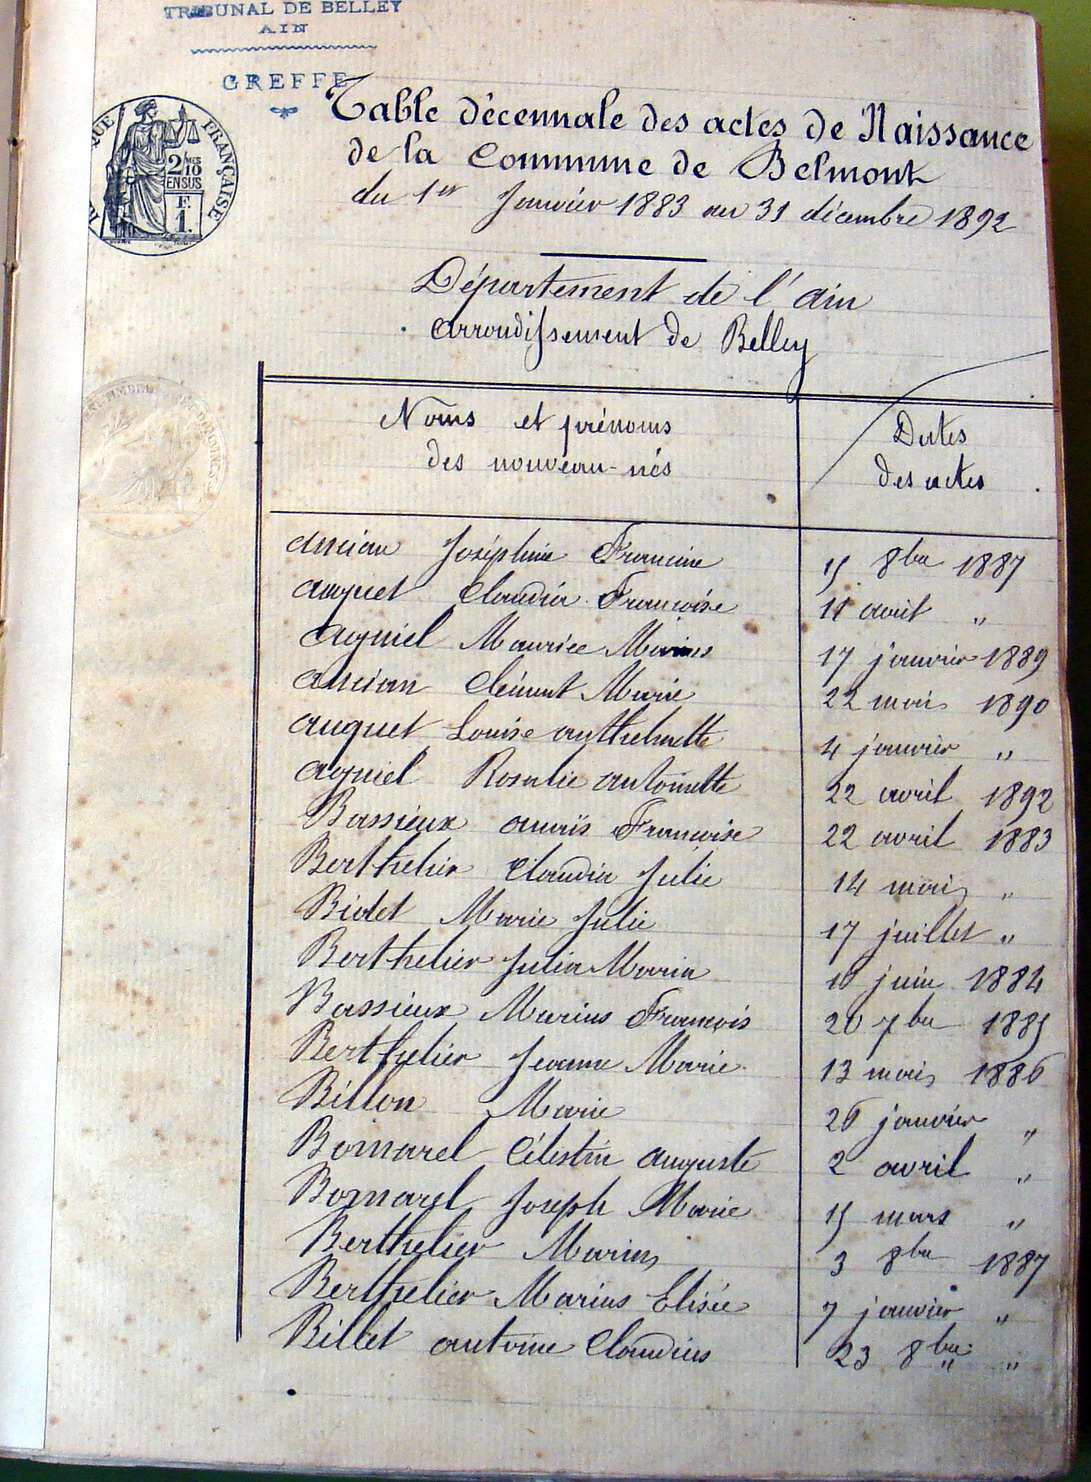 TRIBUNAL DE BELLEY
AIN
GREFFE
RÉPUBLIQUE FRANÇAISE
2/10 MES
EN SUS
F.
1.
Table décennale des actes de Naissance
de la Commune de Belmont
du 1er Janvier 1883 au 31 décembre 1892
Département de l'ain
arrondissement de Belley
Noms et prénoms
des nouveau-nés
Dates
des actes
ancian Joséphine Francine 15 8bre 1887
auguet Claudia Françoise 11 avril "
agniel Maurice Marius 17 janvier 1889
ancian Clément Marie 22 mai 1890
auguet Louise anthelmette 4 janvier "
agniel Rosalie antoinette 22 avril 1892
Bassieux anaïs Françoise 22 avril 1883
Berthelier Claudia Julie 14 mai "
Bidet Marie Julie 17 juillet "
Berthelier Julia Maria juin 1884
Bassieux Marius François 20 7bre 1885
Berthelier Jeanne Marie 13 mai 1886
Billon Marie 26 janvier "
Bornarel Célestin auguste 2 avril "
Bornarel Joseph Marie 15 mars "
Berthelier Marius 3 8bre 1887
Berthelier Marius Elisée 7 janvier "
Billet antoine Claudius 23 8bre "